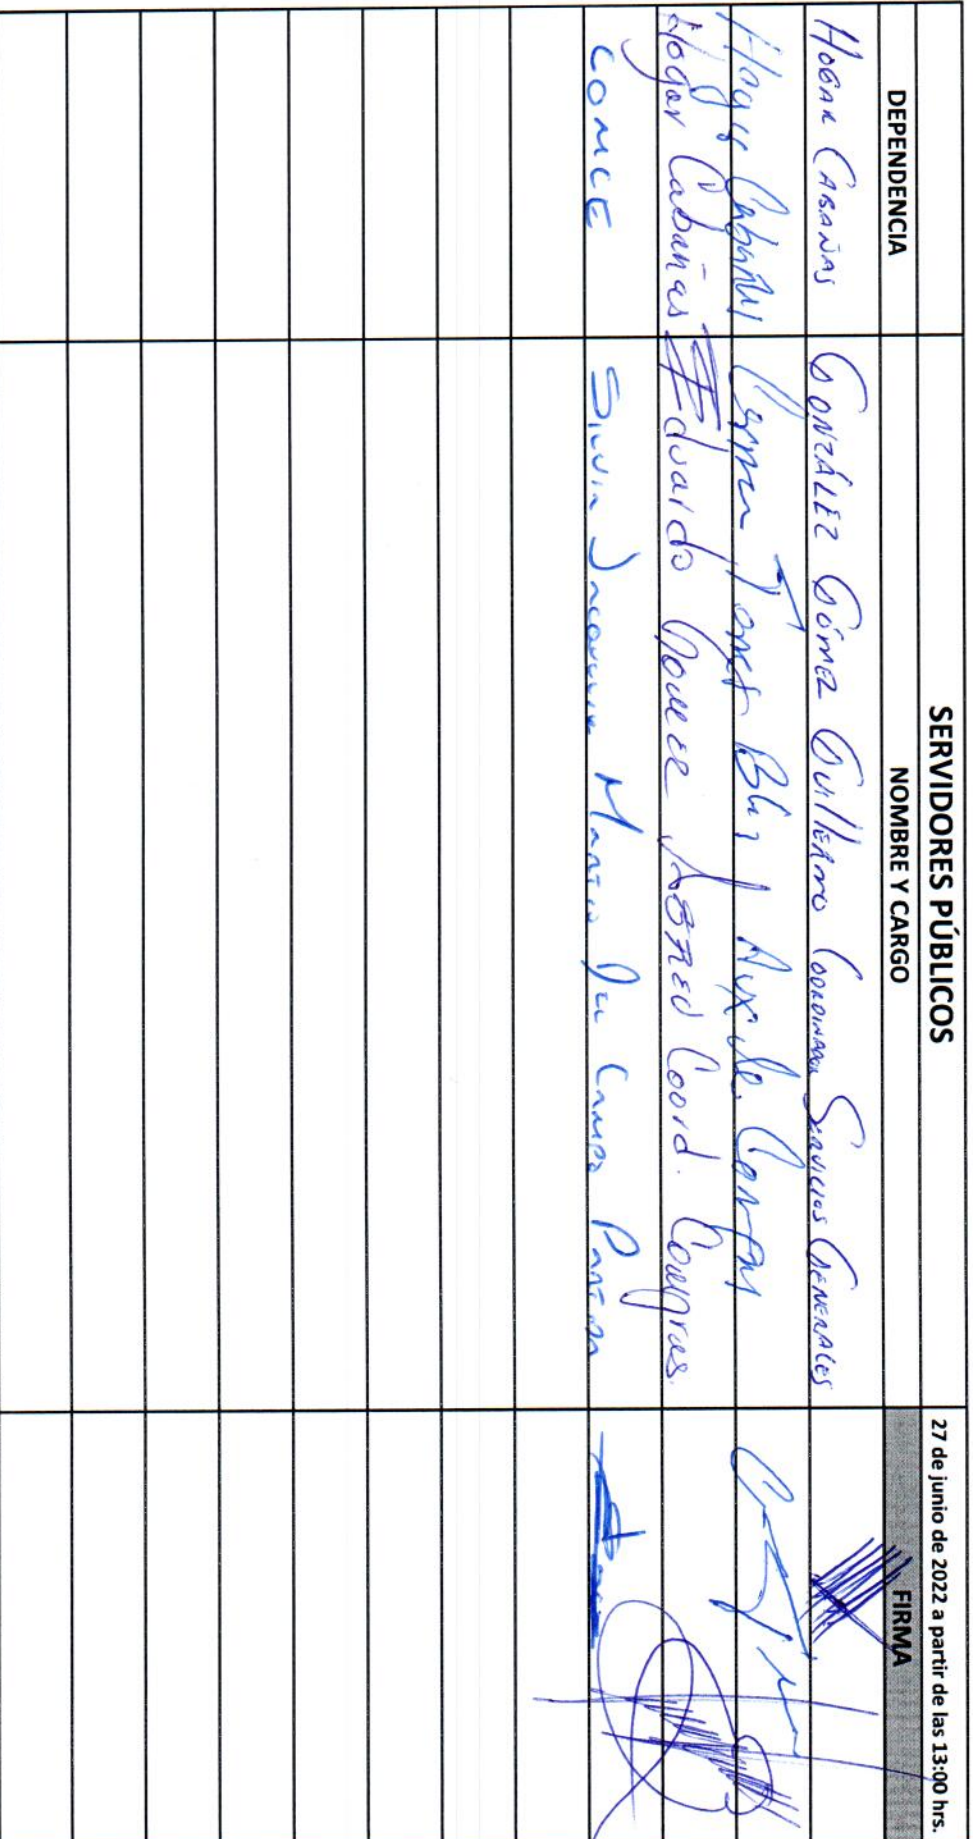 SERVIDORES PÚBLICOS
27 de junio de 2022 a partir de las 13:00 hrs.
DEPENDENCIA NOMBRE Y CARGO FIRMA
HOGAR CABAÑAS GONZÁLEZ GÓMEZ GUILLERMO COORDINADOR SERVICIOS GENERALES
Hogar Cabañas Carmen Aux de
Hogar Cabañas Eduardo Coord. Compras.
COMCE SILVIA JACQUELINE MARTIN DEL CAMPO PARTIDA